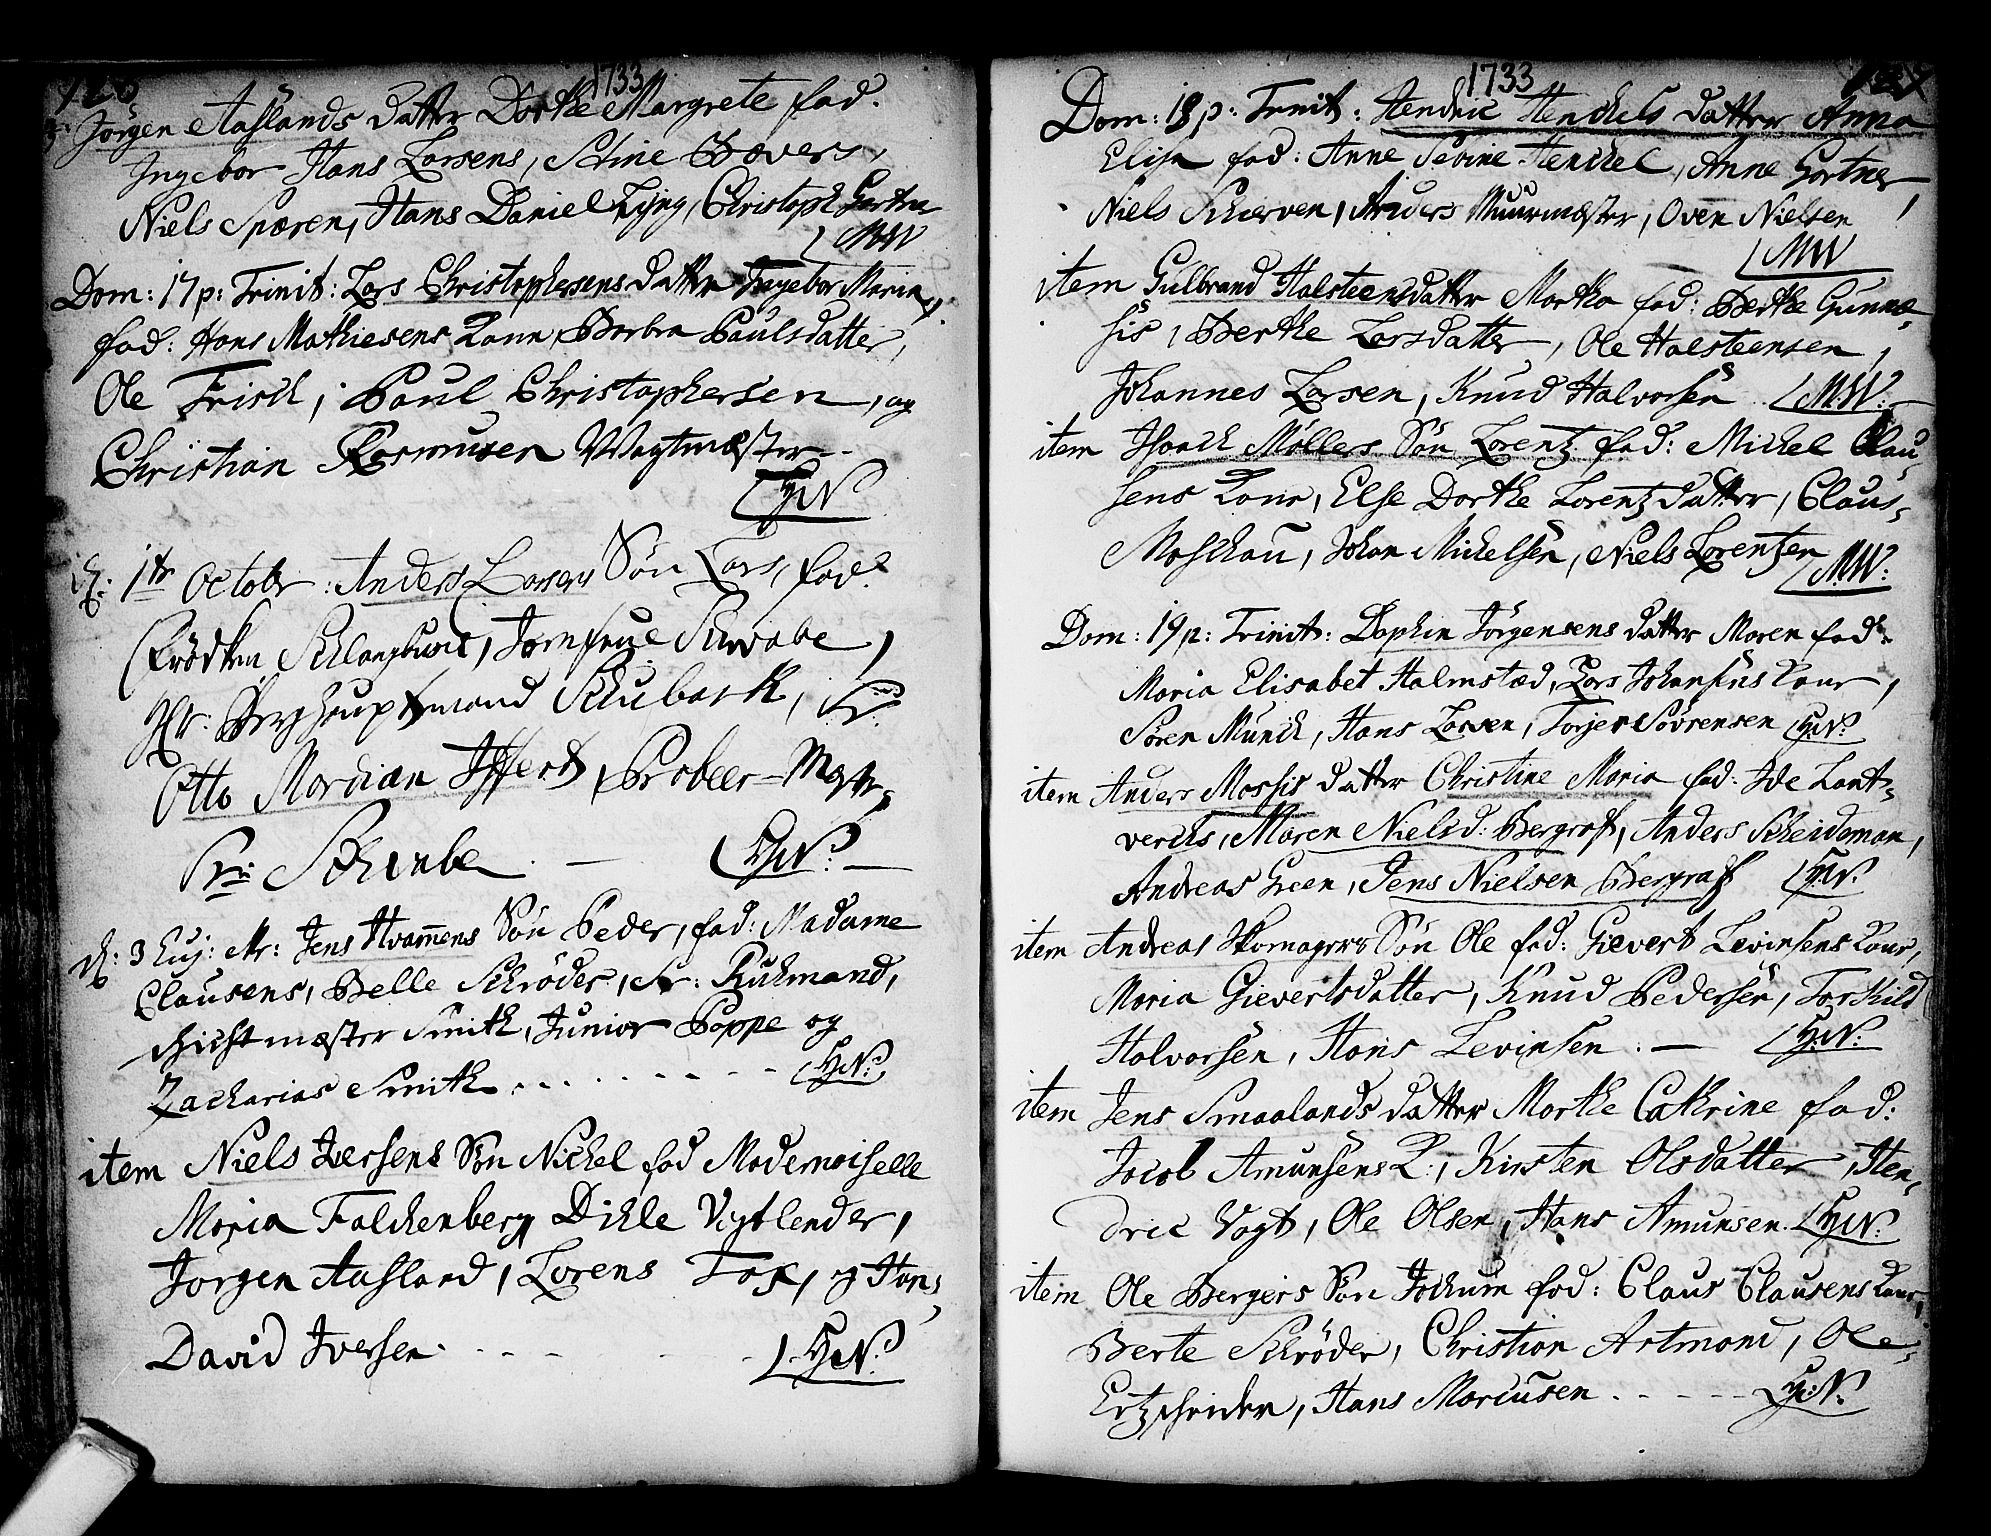 1733
Jörgen Aaslands datter Dorthe Margrete fad.
Ingebor Hans Larsens, Stine Bævers,
Niels Spæren, Hans Daniel Lÿng, Christoph Gartner
MW
Dom: 17 p: Trinit: Lars Christophersens datter Ingebor Maria,
fad: Hans Mathiesens Kone, Barbra Paulsdatter,
Ole Frisch, Paul Christophersen, og
Christian Rasmusen Wagtmæster
HN
d: 1te October: Anders Larsens Sön Lars, fad:
Fröcken Schlangbusch, Jomfrue Schwabe,
Hr. Berghauptmand Schubart, Sr:
Otto Mardian Iffert, Probeer-Mester
Sr: Schwabe. — HN: —
d: 3 Huj: Mr: Jens Hvammens Sön Peder, fad: Madame
Clausens, Belle Schröder, Sr: Ruhmand,
Schichtmæster Smith, Junior Poppe og
Zacharias Smith. HN:
item Niels Iversens Sön Nickel fad Mademoiselle
Maria Falckenberg, Dichle Vogtlender,
Jörgen Aasland, Lorens Fax, og Hans
David Iversen. HN:
1733
127
Dom: 18 p: Trinit: Hendric Henckels datter Anna
Elisa fad: Anne Sevine Henckel, Anne Gartner,
Niels Schierven, Anders Muurmæster, Oven Nielsen
MW
item Gulbrand Halsteensdatter Martha fad: Berthe Gunne-
sis, Berthe Larsdatter, Ole Halsteensen,
Johannes Larsen, Knud Halvorsen MW:
item Isaach Möllers Sön Lorentz fad: Michel Clau-
sens Kone, Else Dorthe Lorentzdatter, Claus
Moschau, Johan Michelsen, Niels Lorentzen
MW:
Dom: 19 p: Trinit: Daphin Jörgensens datter Maren fad:
Maria Elisabet Halmstad, Lars Johansens Kone,
Sören Munch, Hans Larsen, Torjer Sövrensen HN:
item Anders Mossis datter Christine Maria fad: Ide Lant-
verchs, Maren Nielsd: Bergraf, Anders Scheideman,
Andreas Green, Jens Nielsen Bergraf HN:
item Andreas Skomagers Sön Ole fad: Gievert Levinsens Kone,
Maria Gievertsdatter, Knud Pedersen, Torkild
Halvorsen, Hans Levinsen. — HN:
item Jens Smaalands datter Marthe Cathrine fad:
Jacob Amunsens K:, Kirsten Olsdatter, Hen-
dric Vogt, Ole Olsen, Hans Amunsen. HN:
item Ole Bergers Sön Jochum fad: Claus Clausens Kone,
Berte Schröder, Christian Artmand, Ole
Ertzscheider, Hans Marcusen. HN: